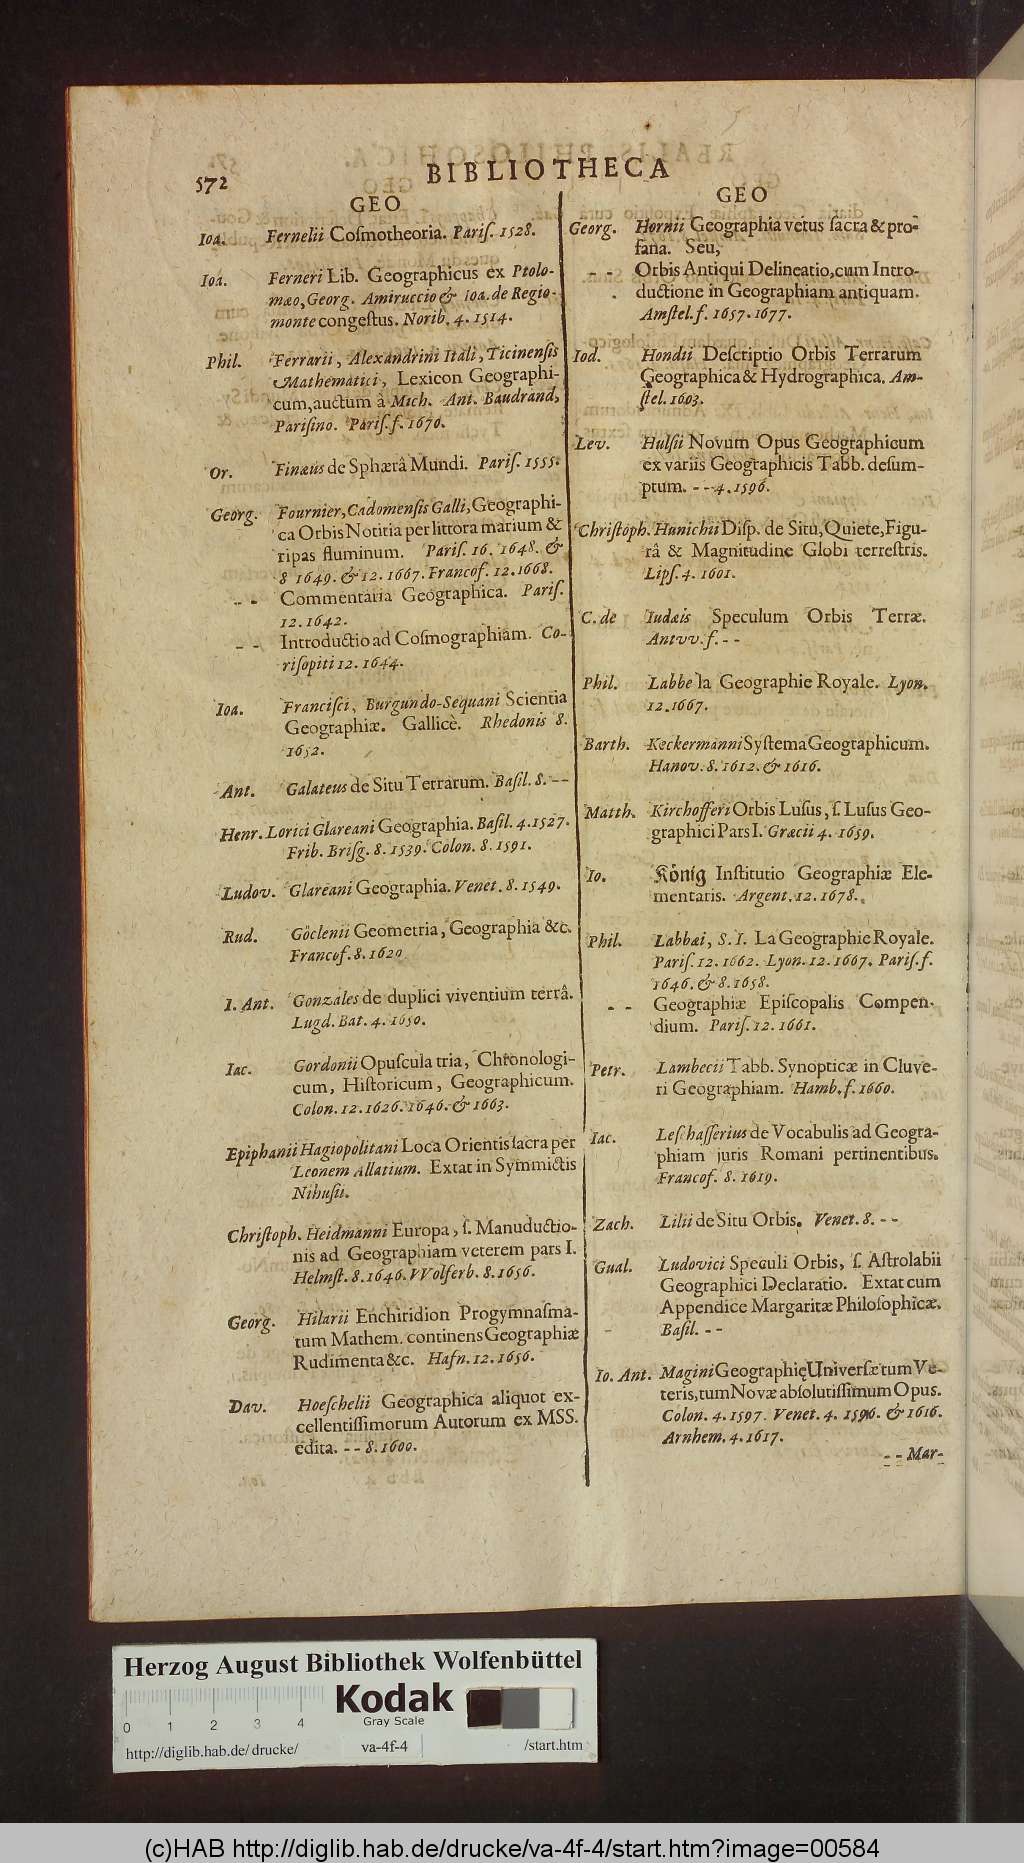 572
BIBLIOTHECA
GEO
Ioa. Fernelii Coſmotheoria. Pariſ. 1528.
Ioa. Ferneri Lib. Geographicus ex Ptolo-
mæo, Georg. Amiruccio & Ioa. de Regio-
monte congeſtus. Norib. 4. 1514.
Phil. Ferrarii, Alexandrini Itali, Ticinenſis
Mathematici, Lexicon Geographi-
cum, auctum â Mich. Ant. Baudrand,
Pariſino. Pariſ. f. 1670.
Or. Finæus de Sphærâ Mundi. Pariſ. 1555.
Georg. Fournier, Cadomenſis Galli, Geographi-
ca Orbis Notitia per littora marium &
ripas fluminum. Pariſ. 16. 1648. &
8 1649. & 12. 1667. Francof. 12. 1668.
- - Commentaria Geographica. Pariſ.
12. 1642.
- - Introductio ad Coſmographiam. Co-
riſopiti 12. 1644.
Ioa. Franciſci, Burgundo-Sequani Scientia
Geographiæ. Gallicè. Rhedonis 8.
1652.
Ant. Galateus de Situ Terrarum. Baſil. 8. - -
Henr. Lorici Glareani Geographia. Baſil. 4. 1527.
Frib. Briſg. 8. 1539. Colon. 8. 1591.
Ludov. Glareani Geographia. Venet. 8. 1549.
Rud. Göclenii Geometria, Geographia &c.
Francof. 8. 1620
I. Ant. Gonzales de duplici viventium terrâ.
Lugd. Bat. 4. 1650.
Iac. Gordonii Opuſcula tria, Chronologi-
cum, Hiſtoricum, Geographicum.
Colon. 12. 1626. 1646. & 1663.
Epiphanii Hagiopolitani Loca Orientis ſacra per
Leonem Allatium. Extat in Symmictis
Nihuſii.
Chriſtoph. Heidmanni Europa, ſ. Manuductio-
nis ad Geographiam veterem pars I.
Helmſt. 8. 1646. VVolferb. 8. 1656.
Georg. Hilarii Enchiridion Progymnaſma-
tum Mathem. continens Geographiæ
Rudimenta &c. Hafn. 12. 1656.
Dav. Hoeſchelii Geographica aliquot ex-
cellentiſſimorum Autorum ex MSS.
edita. - - 8. 1600.
GEO
Georg. Hornii Geographia vetus ſacra & pro-
fana. Seu,
- - Orbis Antiqui Delineatio, cum Intro-
ductione in Geographiam antiquam.
Amſtel. f. 1657. 1677.
Iod. Hondii Deſcriptio Orbis Terrarum
Geographica & Hydrographica. Am-
ſtel. 1603.
Lev. Hulſii Novum Opus Geographicum
ex variis Geographicis Tabb. deſum-
ptum. - - 4. 1596.
Chriſtoph. Hunichii Diſp. de Situ, Quiete, Figu-
râ & Magnitudine Globi terreſtris.
Lipſ. 4. 1601.
C. de Iudæis Speculum Orbis Terræ.
Antvv. f. - -
Phil. Labbe la Geographie Royale. Lyon.
12. 1667.
Barth. Keckermanni Syſtema Geographicum.
Hanov. 8. 1612. & 1616.
Matth. Kirchofferi Orbis Luſus, ſ. Luſus Geo-
graphici Pars I. Græcii 4. 1659.
Io. König Inſtitutio Geographiæ Ele-
mentaris. Argent. 12. 1678.
Phil. Labbæi, S. I. La Geographie Royale.
Pariſ. 12. 1662. Lyon. 12. 1667. Pariſ. f.
1646. & 8. 1658.
- - Geographiæ Epiſcopalis Compen-
dium. Pariſ. 12. 1661.
Petr. Lambecii Tabb. Synopticæ in Cluve-
ri Geographiam. Hamb. f. 1660.
Iac. Leſchaſſerius de Vocabulis ad Geogra-
phiam juris Romani pertinentibus.
Francof. 8. 1619.
Zach. Lilii de Situ Orbis. Venet. 8. - -
Gual. Ludovici Speculi Orbis, ſ. Aſtrolabii
Geographici Declaratio. Extat cum
Appendice Margaritæ Philoſophicæ.
Baſil. - -
Io. Ant. Magini Geographię Univerſæ tum Ve-
teris, tum Novæ abſolutiſſimum Opus.
Colon. 4. 1597. Venet. 4. 1596. & 1616.
Arnhem. 4. 1617.
- - Mar-
Herzog August Bibliothek Wolfenbüttel
0 1 2 3 4
Kodak
Gray Scale
http://diglib.hab.de/drucke/ va-4f-4 /start.htm
(c)HAB http://diglib.hab.de/drucke/va-4f-4/start.htm?image=00584